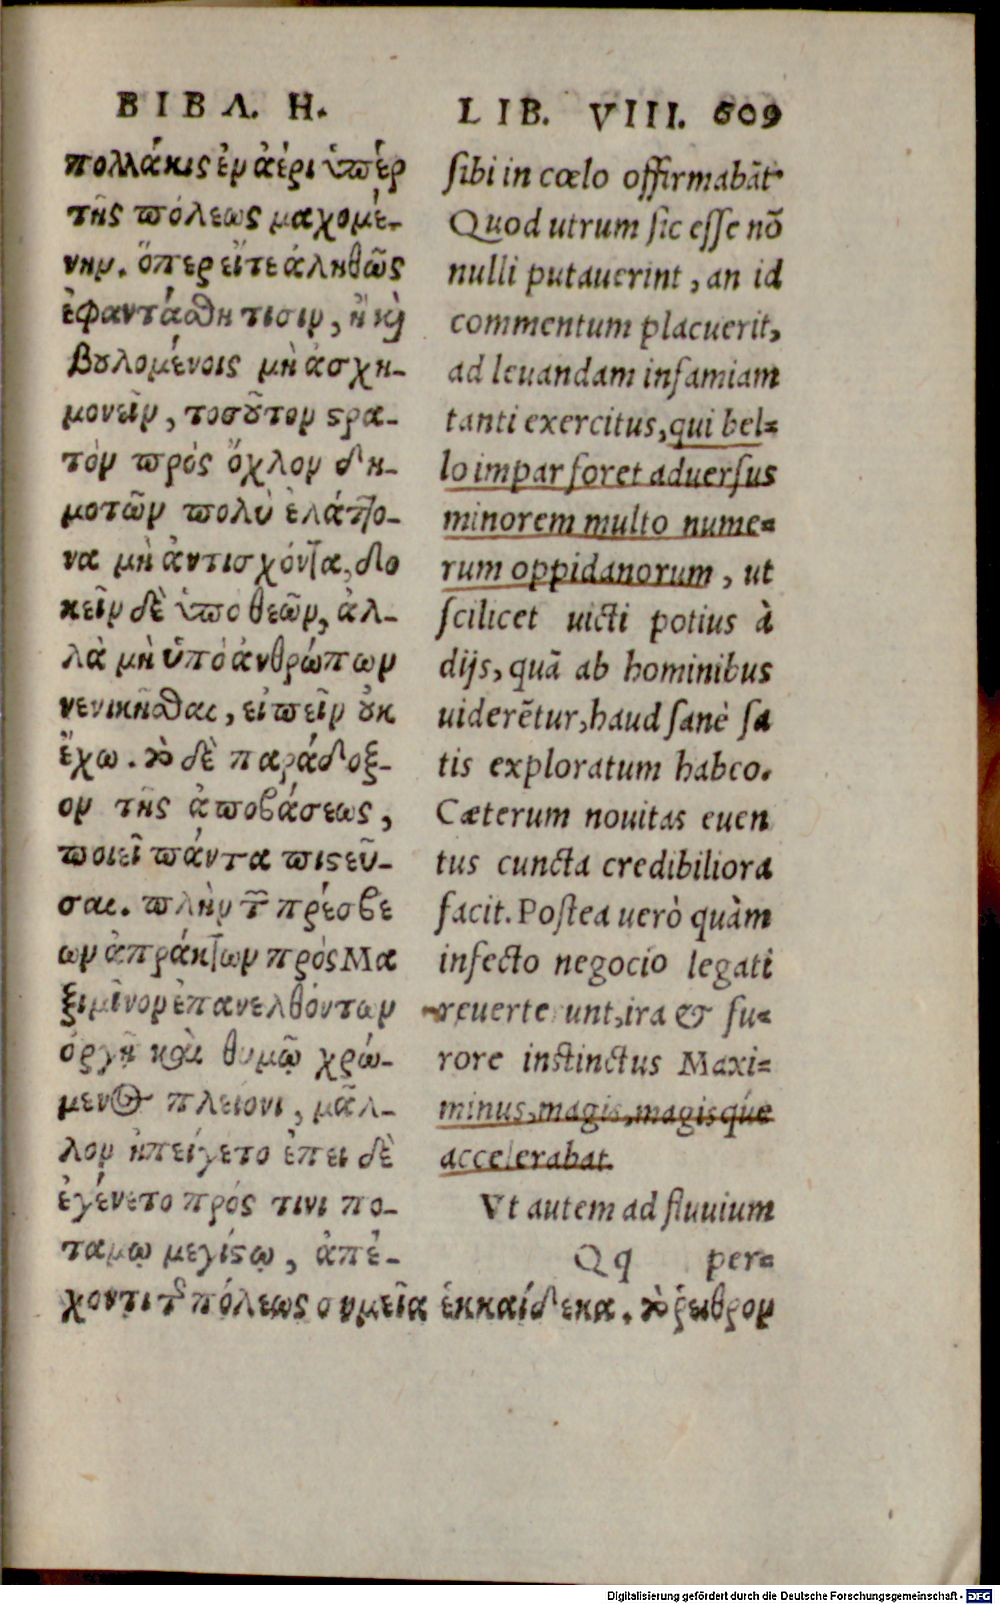 ΒΙΒΛ. Η.
πολλάκις ἐν ἀέρι ὑπὲρ
τῆς πόλεως μαχομέ-
νην. ὅπερ εἴτε ἀληθῶς
ἐφαντάσθη τισιν, ἢ κỳ
βȣλομένοις μὴ ἀσχη-
μονεῖν, τοσȣ͂τον ϛρα-
τὸν πρὸς ὄχλον δη-
μοτῶν πολὺ ἐλάττο-
να μὴ ἀντισχόντα, δο
κεῖν δὲ ὑπο θεῶν, ἀλ-
λὰ μὴ ὑπὸ ἀνθρώπων
νενικῆσθαι, εἰπεῖν ȣ̓κ
ἔχω. τὸ δὲ παράδοξ-
ον τῆς ἀποβάσεως,
ποιεῖ πάντα πιϛεῦ-
σαι. πλὴν τῶν πρέσβε
ων ἀπράκτων πρὸς Μα
ξιμῖνον ἐπανελθόντων
ὀργῇ καὶ θυμῷ χρώ-
μενος πλείονι, μᾶλ-
λον ἠπείγετο ἐπει δὲ
ἐγένετο πρός τινι πο-
ταμῳ μεγίϛῳ, ἀπέ-
χοντι τῆς πόλεως σημεῖα ἑκκαίδεκα. τὸ ῥεῖθρον
LIB. VIII. 609
sibi in cœlo offirmabãt
Quod utrum sic esse nõ
nulli putauerint, an id
commentum placuerit,
ad leuandam infamiam
tanti exercitus, qui bel=
lo impar foret aduersus
minorem multo nume=
rum oppidanorum, ut
scilicet uicti potius à
dijs, quã ab hominibus
uiderẽtur, haud sanè sa
tis exploratum habeo.
Cæterum nouitas euen
tus cuncta credibiliora
facit. Postea uerò quàm
infecto negocio legati
reuerterunt, ira & fu=
rore instinctus Maxi=
minus, magis, magisq́ue
accelerabat.
Vt autem ad fluuium
Qq per=
Digitalisierung gefördert durch die Deutsche Forschungsgemeinschaft - DFG